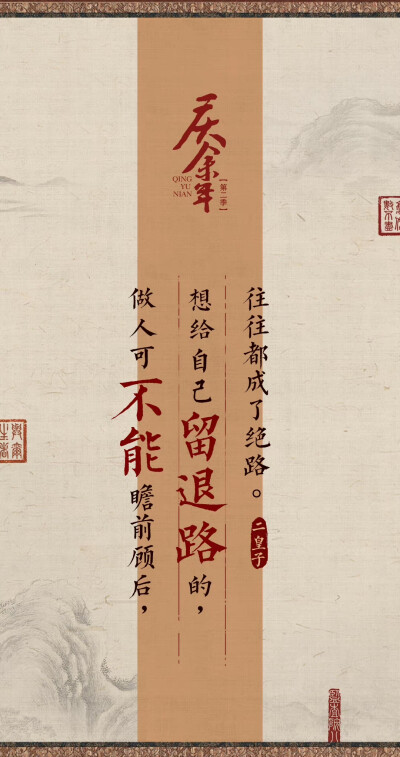 庆余年
QING
YU
NIAN
【第二季】
做人可不能瞻前顾后，
想给自己留退路的，
往往都成了绝路。
二皇子